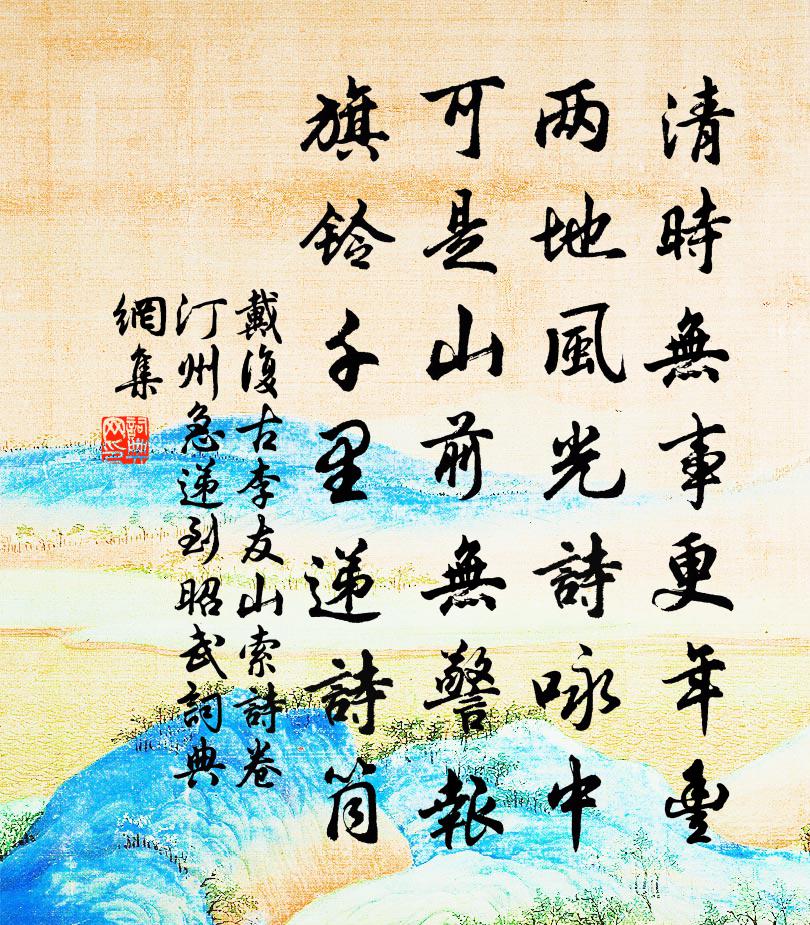 清時無事更年豊
两地風光詩咏中
可是山前無警報
旗鈴千里递詩筒
戴復古李友山索詩卷
汀州急递到昭武詞典
網集
詞典網集